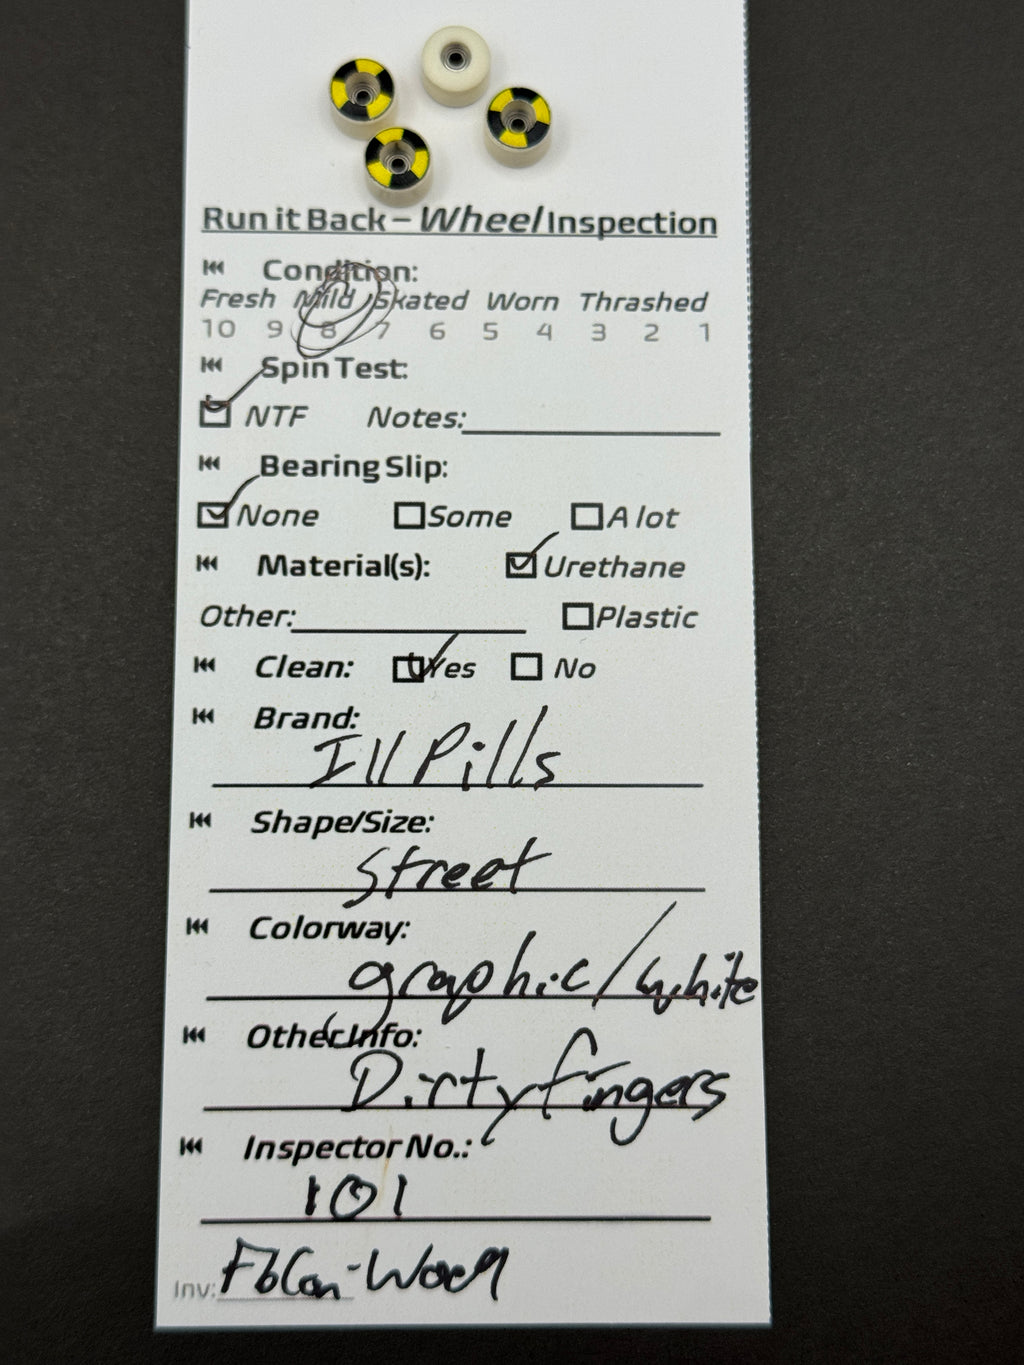 Run it Back – Wheel Inspection
Condition:
Fresh Mild Skated Worn Thrashed
10 9 8 7 6 5 4 3 2 1
Spin Test:
NTF Notes:
Bearing Slip:
None Some A lot
Material(s): Urethane
Other: Plastic
Clean: Yes No
Brand:
Ill Pills
Shape/Size:
Street
Colorway:
graphic/white
Other Info:
Dirtyfingers
Inspector No.:
101
Inv: